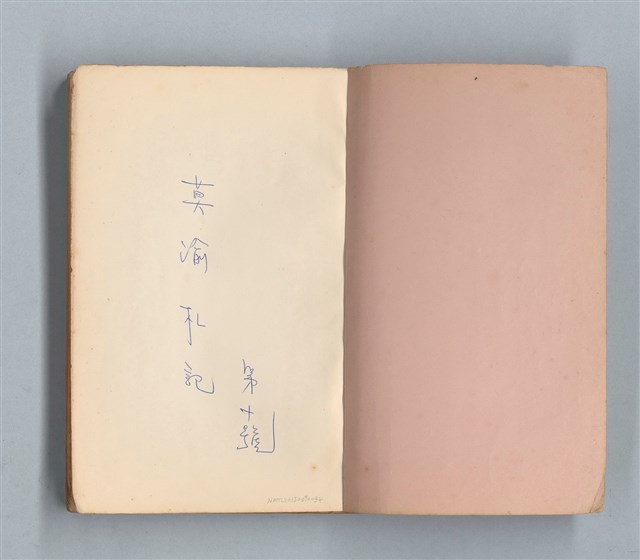 莫渝札記
第十號